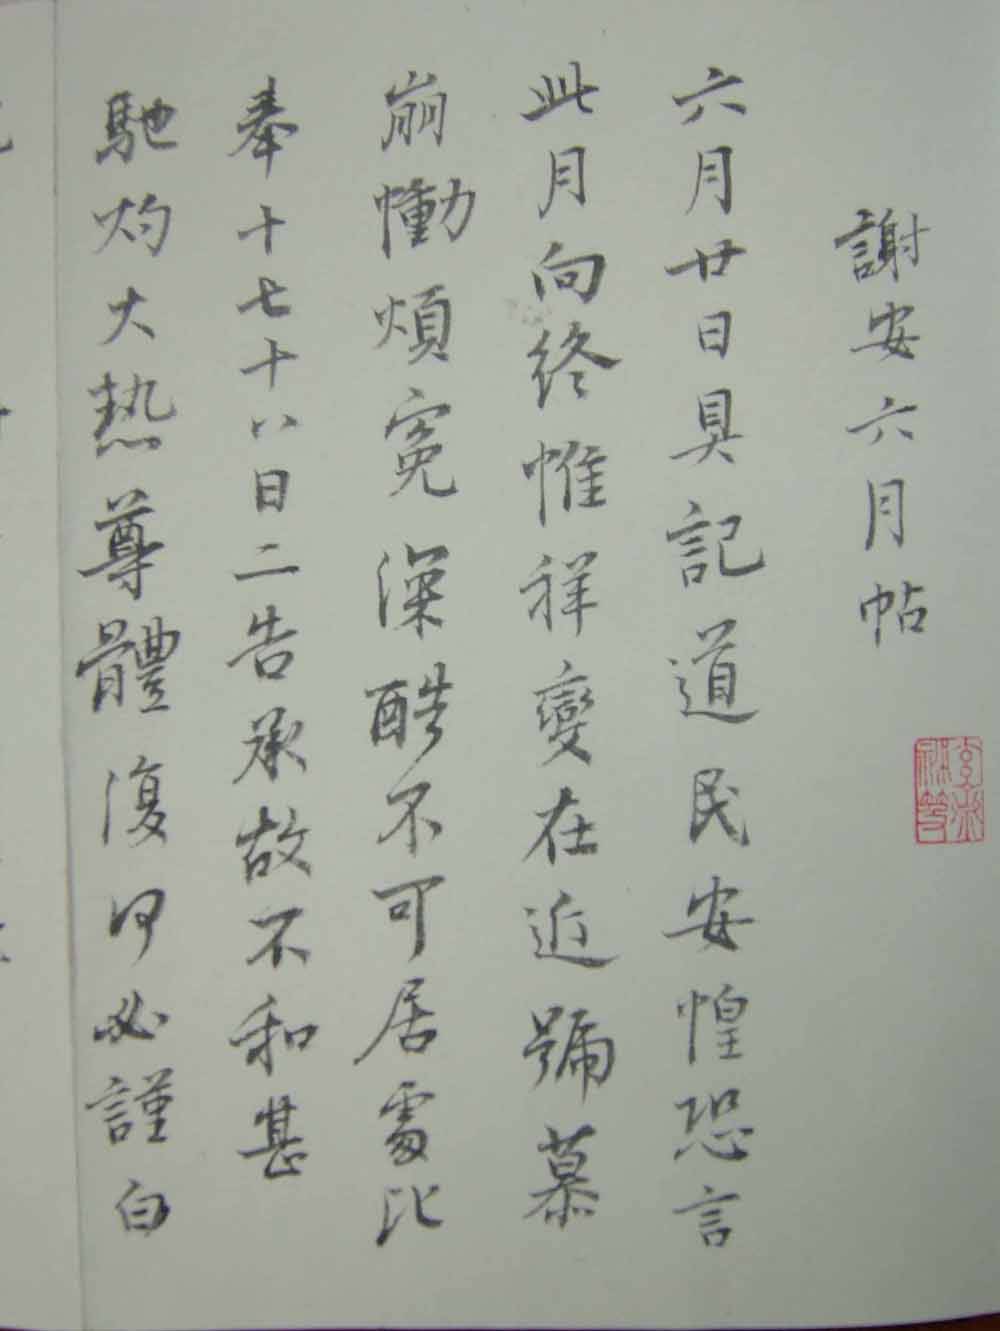 謝安六月帖
六月廿日具記道民安惶恐言
此月向終惟祥變在近號慕
崩慟煩冤深酷不可居處比
奉十七十八日二告承故不和甚
馳灼大热尊體復何如謹白